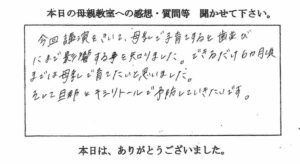 本日の母親教室への感想・質問等 聞かせて下さい。
今回講演をきいて、母乳で子育てすると歯並び
にまで影響する事を知りました。できるだけ6カ月頃
までは母乳で育てたいと思いました。
そして旦那とキシリトールで予防していきたいです。
本日は、ありがとうございました。